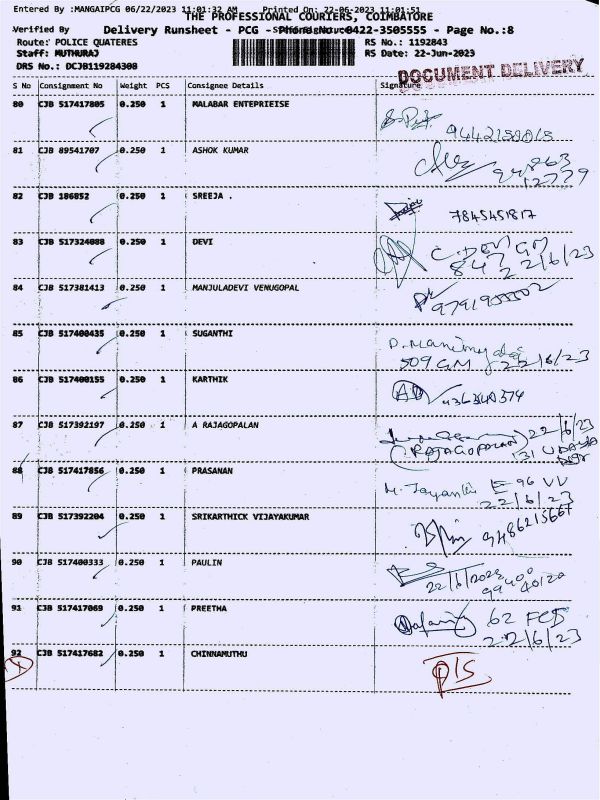 Entered By :MANGAIPCG 06/22/2023 11:01:32 AM Printed On: 22-06-2023 11:01:51
THE PROFESSIONAL COURIERS, COIMBATORE
Verified By Delivery Runsheet - PCG - Phone No.:0422-3505555 - Page No.:8
Route: POLICE QUATERES RS No.: 1192843
Staff: MUTHURAJ RS Date: 22-Jun-2023
DRS No.: DCJB119284308
DOCUMENT DELIVERY
S No Consignment No Weight PCS Consignee Details Signature
80 CJB 517417805 0.250 1 MALABAR ENTEPRIEISE
81 CJB 89541707 0.250 1 ASHOK KUMAR
12779
82 CJB 186852 0.250 1 SREEJA .
7845451817
83 CJB 517324088 0.250 1 DEVI
22/6/23
84 CJB 517381413 0.250 1 MANJULADEVI VENUGOPAL
85 CJB 517400435 0.250 1 SUGANTHI
509 GM 22/6/23
86 CJB 517400155 0.250 1 KARTHIK
87 CJB 517392197 0.250 1 A RAJAGOPALAN
22/6/23
(RAJAGOPALAN) 131
88 CJB 517417856 0.250 1 PRASANAN
M. Jayanthi E 96 VV
22/6/23
89 CJB 517392204 0.250 1 SRIKARTHICK VIJAYAKUMAR
9486215667
90 CJB 517400333 0.250 1 PAULIN
22/6/2023
91 CJB 517417069 0.250 1 PREETHA
62
22/6/23
92 CJB 517417682 0.250 1 CHINNAMUTHU